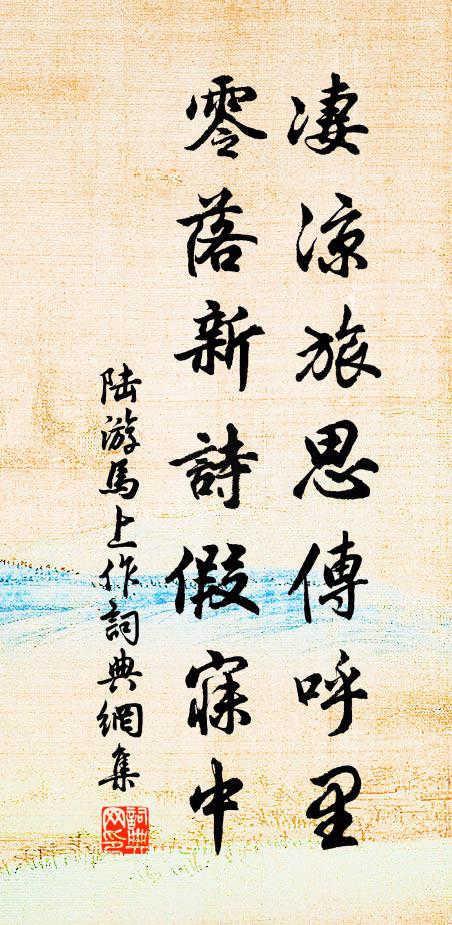 凄涼旅思傳呼里
零落新詩假寐中
陆游馬上作詞典網集
詞典网印